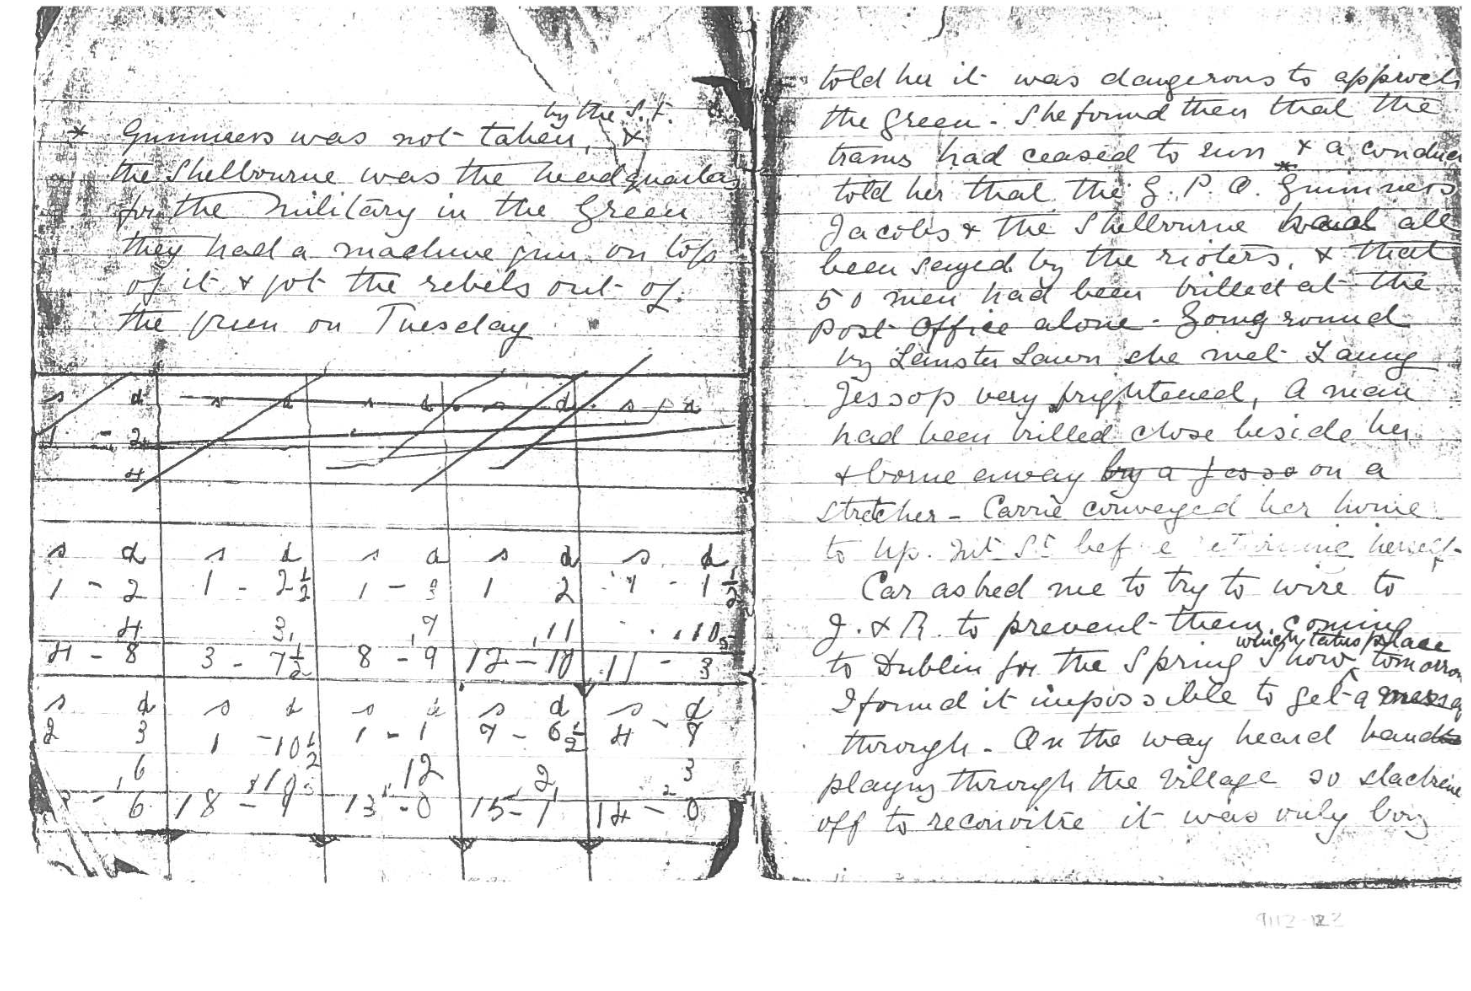 by the S. F.
* Guinness was not taken, &
the Shelbourne was the headquarters
for the military in the Green
they had a machine gun on top
of it & got the rebels out of
the green on Tuesday
s d s d s d s d s d
1 - 2
4
s d s d s d s d s d
1 - 2 1 - 2½ 1 - 1 2 1 - 1½
4 3 7 11 10
4 - 8 3 - 7½ 8 - 9 12 - 10 11 - 3
s d s d s d s d s d
2 3 1 - 10½ 1 - 1 7 - 6½ 4 -
6 12 2 3
- 6 18 - 9 13 - 0 15 - 1 14 - 0
told her it was dangerous to approach
the Green - She found then that the
trams had ceased to run & a conduc
told her that the G. P. O. * Guinness
Jacobs & the Shelbourne had all
been seized by the rioters, & that
50 men had been killed at the
post Office alone - Going round
by Leinster Lawn she met Fanny
Jessop very frightened, A man
had been killed close beside her
& borne away by a Jesso on a
stretcher - Carrie conveyed her home
to Up. Mt St before returning herself.
Car asked me to try to wire to
J. & R. to prevent them coming
which takes place
to Dublin for the Spring Show tomorrow
I found it impossible to get a messag
through - On the way heard band
playing through the village so
off to reconoitre it was only boy
9112-122